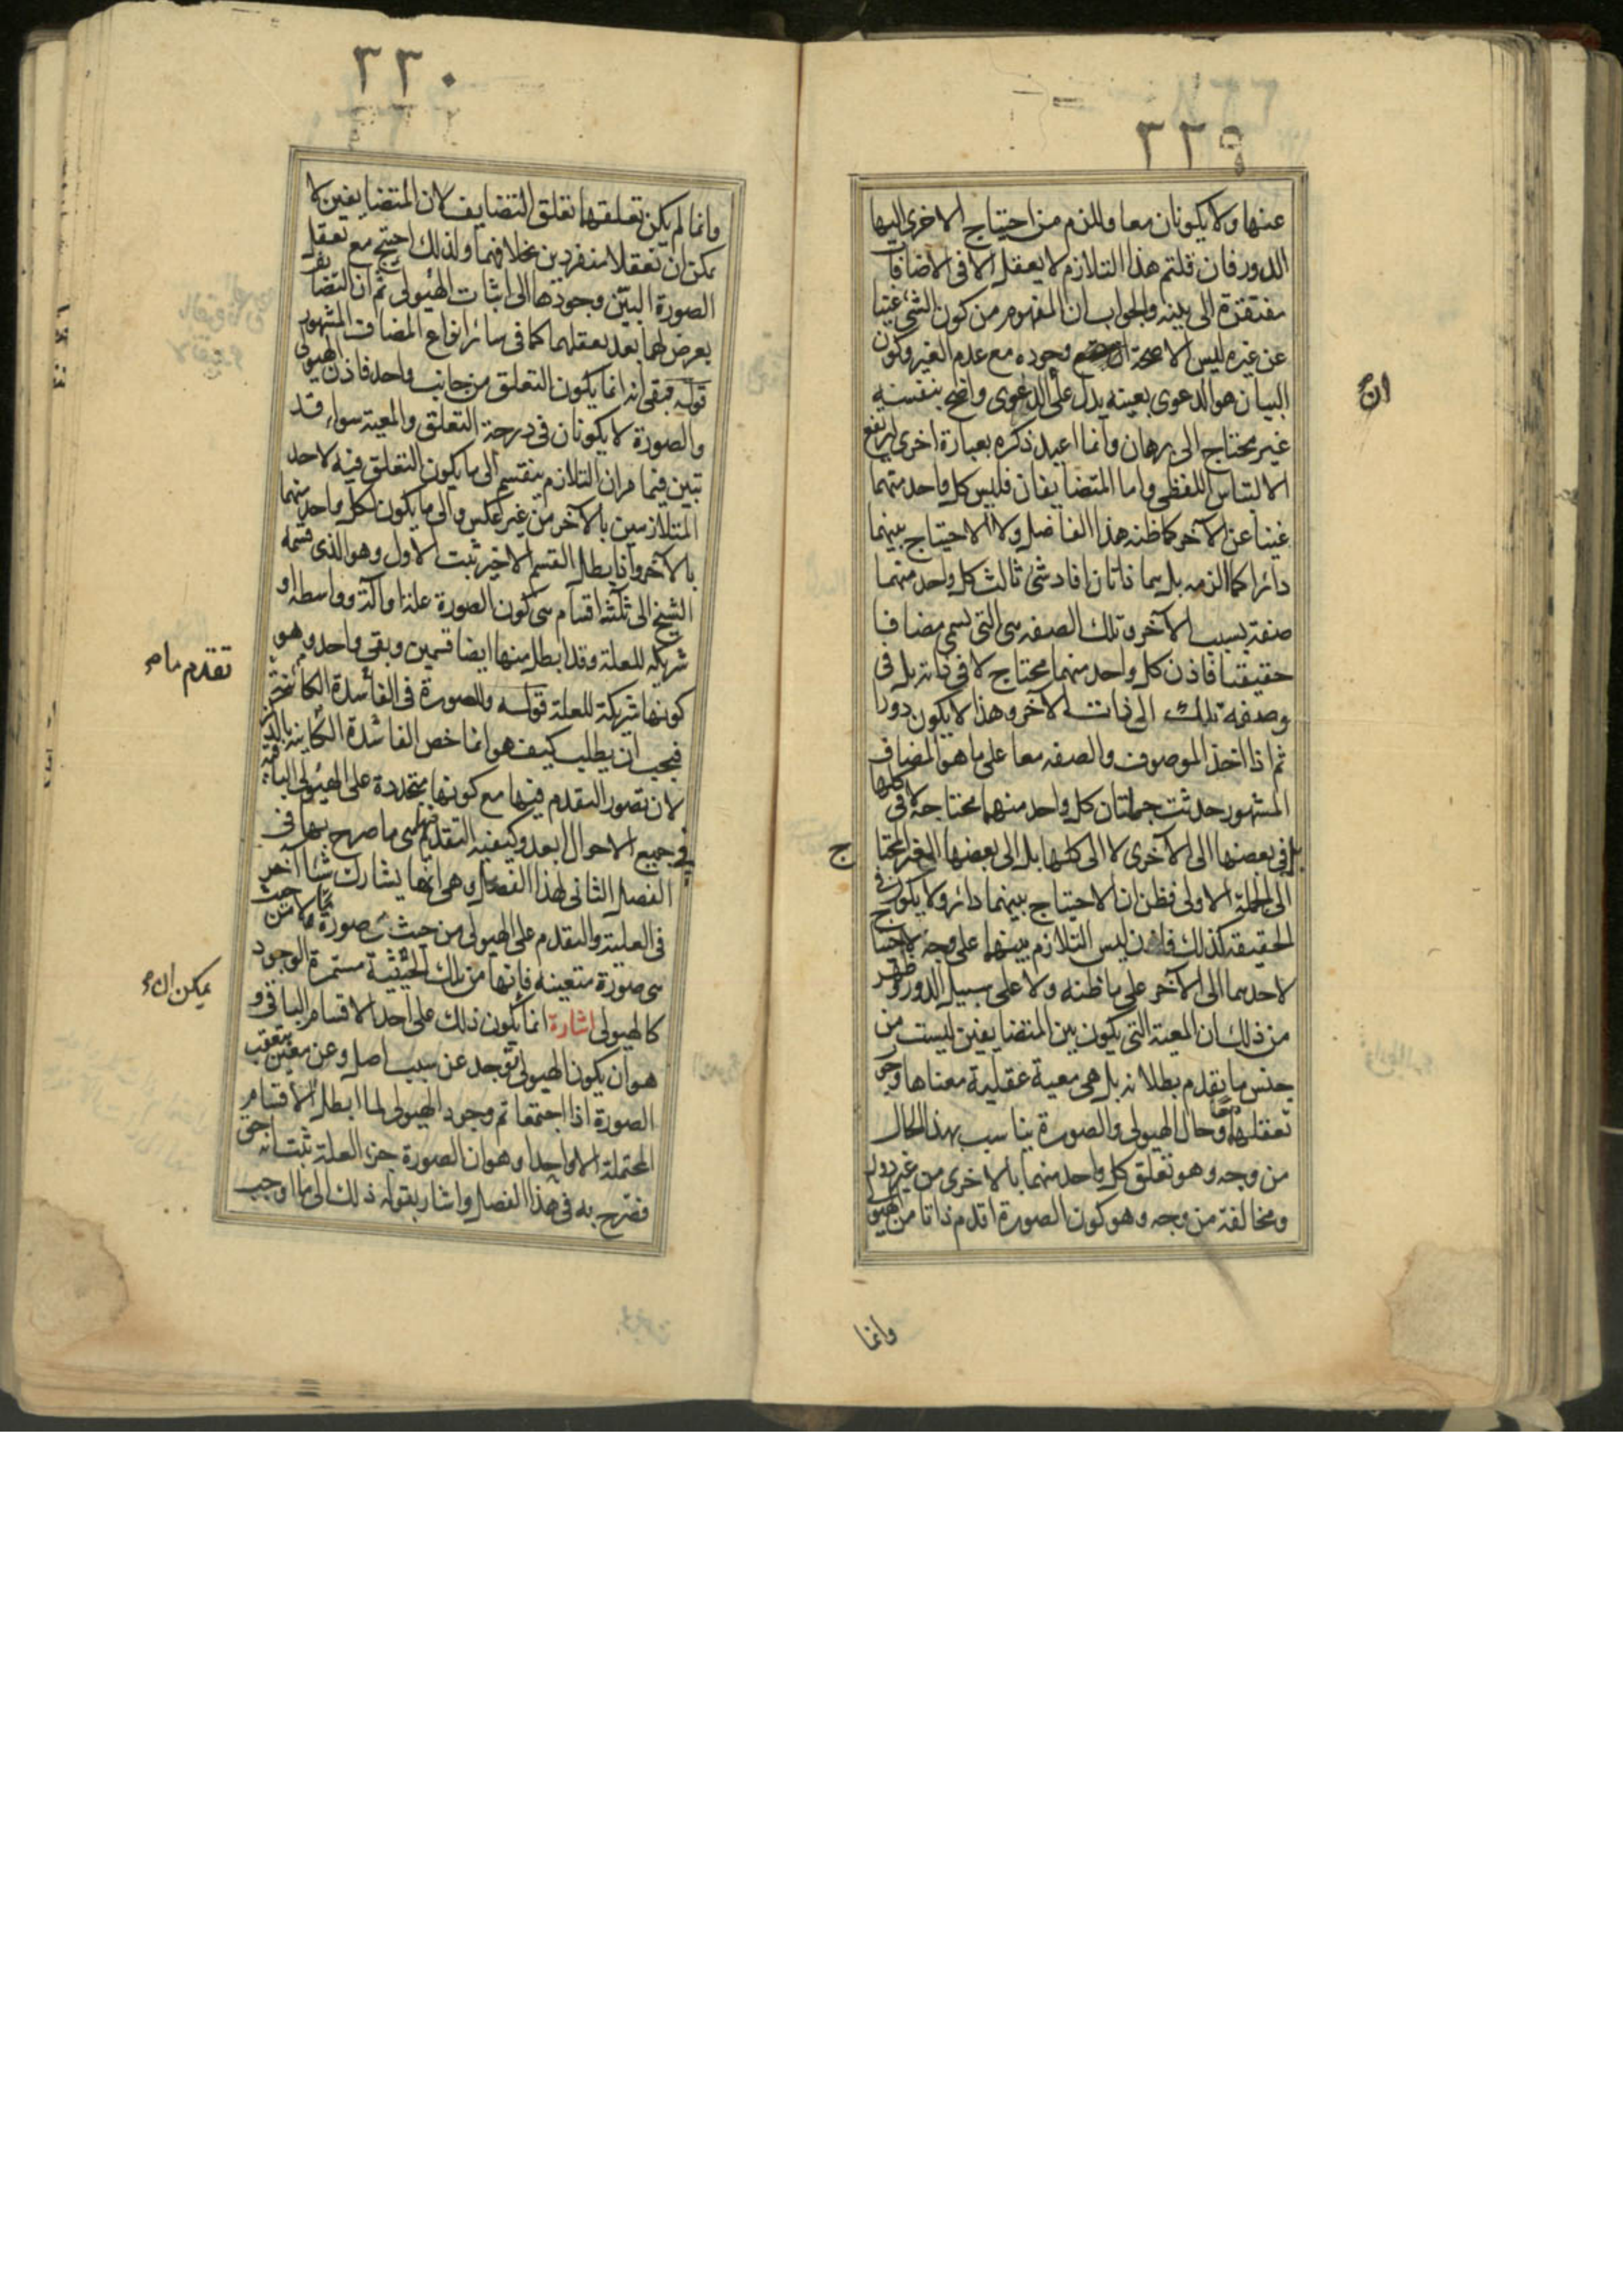 ٣٣٩
عنها ولا يكونان معا وللزم من احتياج الاخرى اليها
الدور فان قلتم هذا التلازم لا يعقل الا فى الاضافات
مفتقرة الى بينه والجواب ان المفهوم من كون الشئ غنيا
عن غيره ليس الا صحة وجوده مع عدم الغير وكون
البيان هو الدعوى بعينه يدل على ان الدعوى واضح بنفسه
غير محتاج الى برهان وانما اعيد ذكره بعبارة اخرى ليرتفع
الالتباس اللفظى واما المتضايفان فليس كل واحد منهما
غنيا عن الآخر كما ظنه هذا الفاضل ولا الاحتياج بينهما
دائرا كما الزمه بل هما ذاتان افاد شئ ثالث كل واحد منهما
صفة بسبب الآخر وتلك الصفه هى التى يسمى مضافا
حقيقيا فاذن كل واحد منهما محتاج لا فى ذاته بل فى
وصفه تلك الى ذات الآخر وهذا لا يكون دورا
ثم اذا اخذ الموصوف والصفه معا على ما هو المضاف
المشهور حدثت جملتان كل واحد منهما محتاجة لا فى كلها
بل فى بعضها الى الاخرى لا الى كلها بل الى بعضها الغير المحتا
ج
الى الجملة الاولى فظن ان الاحتياج بينهما دائر ولا يكون فى
الحقيقه كذلك فاذن ليس التلازم بينهما على وجه الاحتياج
لاحدهما الى الآخر على ما ظنه ولا على سبيل الدور وظهر
من ذلك ان المعية التى يكون بين المتضايفين ليست من
جنس ما يقدم بطلانه بل هى معية عقلية معناها وجوب
تعقلهما معا وحال الهيولى والصورة يناسب بهذا الحال
من وجه وهو تعلق كل واحد منهما بالاخرى من غير دور
ومخالفة من وجه وهو كون الصورة اقدم ذاتا من الهيولى
وانما
ان
٣٣٠
وانما لم يكن تعلقهما تعلق التضايف لان المتضايفين لا
يمكن ان تعقلا منفردين بخلافهما ولذلك احتيج مع تعقل
الصورة البيّن وجودها الى اثبات الهيولى ثم ان التضايف
يعرض لهما بعد تعقلهما كما فى سائر انواع المضاف المشهور
قوله فبقى انه انما يكون التعلق من جانب واحد فاذن الهيولى
والصورة لا يكونان فى درجة التعلق والمعية سواء قد
تبين فيما مر ان التلازم ينقسم الى ما يكون التعلق فيه لاحد
المتلازمين بالآخر من غير عكس والى ما يكون لكل واحد منهما
بالآخر واذا بطل القسم الاخير ثبت الاول وهو الذى قسمه
الشيخ الى ثلثة اقسام هى كون الصورة علة او آلة وواسطة او
شريكه للعلة وقد ابطل منها ايضا قسمين وبقى واحد وهو
كونها شريكة للعلة قوله وللصورة فى الفاسدة الكائنة
فيجب ان يطلب كيف هو انما خص الفاسدة الكاينة بالذكر
لان تصور التقدم فيها مع كونها متجددة على الهيولى الباقية
فى جميع الاحوال ابعد وكيفية التقدم هى ما صرح بها فى
الفصل الثانى لهذا الفصل وهى انها يشارك شيئا آخر
فى العلية والتقدم على الهيولى من حيث هى صورة ما لا من حيث
هى صورة متعينه فانها من تلك الحيثية مستمرة الوجود
كالهيولى اشارة انما يكون ذلك على احد الاقسام الباقى و
هو ان يكون الهيولى توجد عن سبب اصل وعن معين بتعقب
الصورة اذا اجتمعا تم وجود الهيولى لما ابطل الاقسام
المحتملة الا واحدا وهو ان الصورة جزء العلة ثبت انه حق
فصرح به فى هذا الفصل واشار بقوله ذلك الى ما اوجب
تقدم ما
يمكن ان